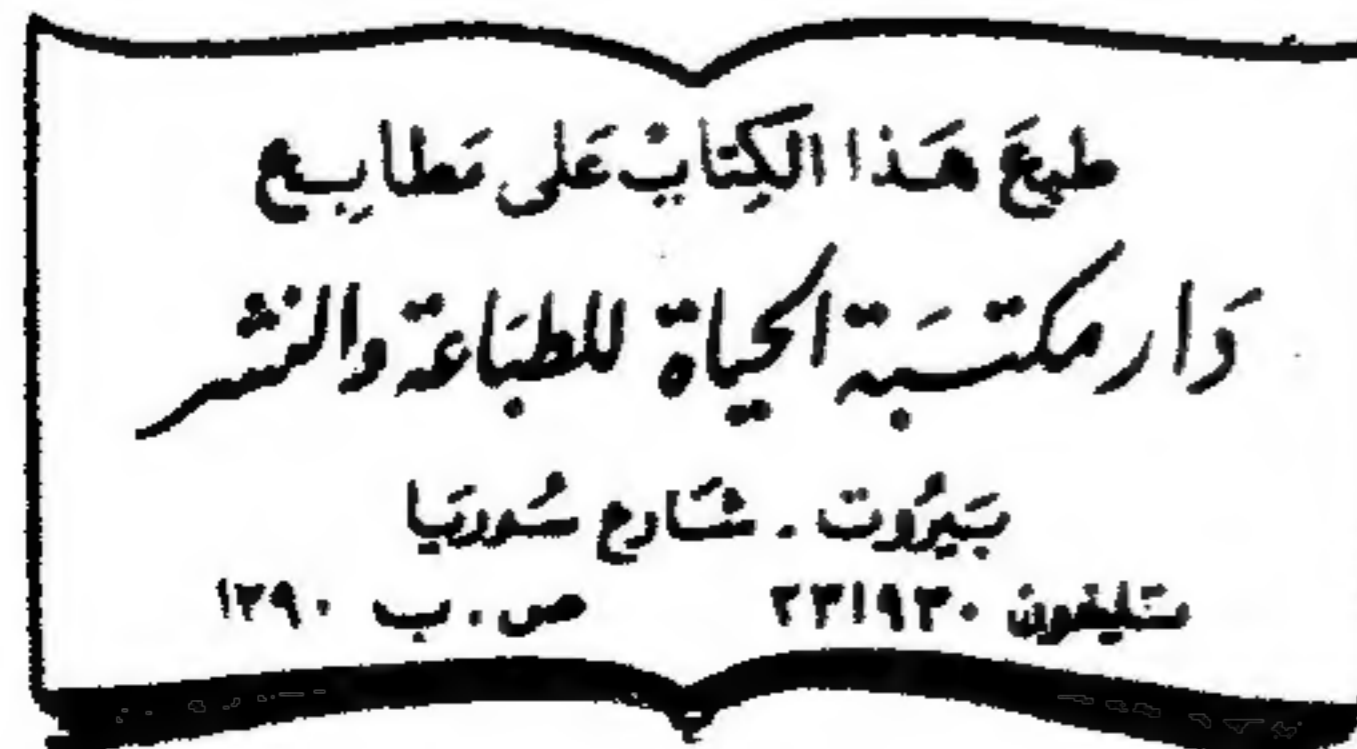 طبعَ هَذا الكِتابْ عَلى مَطابِع
دَار مكتبَة الحياة للطبَاعة والنشر
بَيرُوت . شَارع سُوريَا
تليفون ٢٣١٩٣٠ ص . ب ١٣٩٠